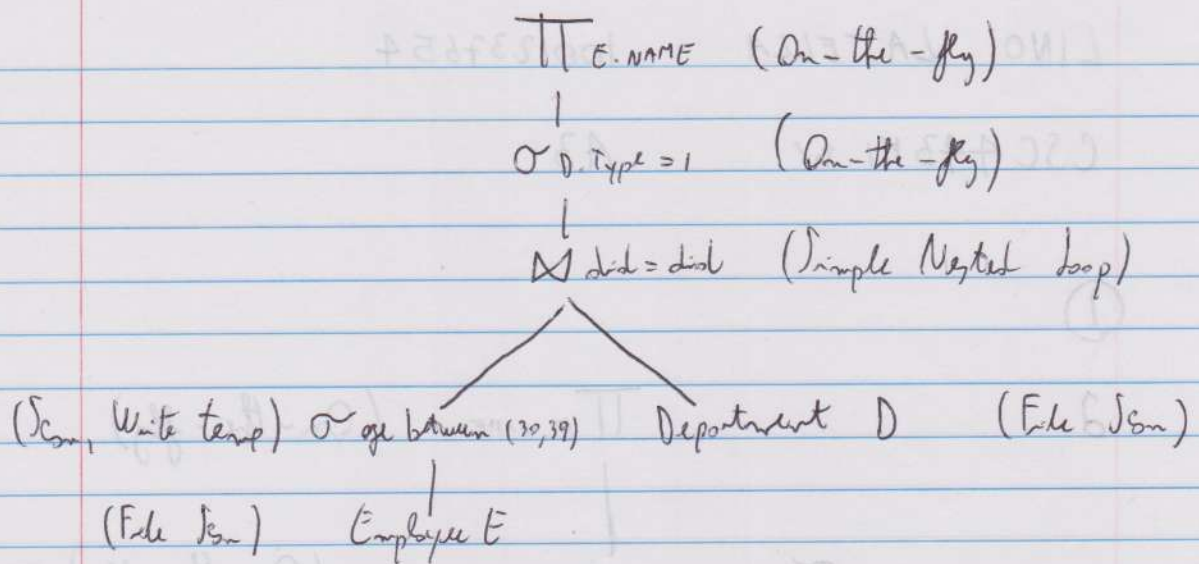 π E.NAME (On-the-fly)
σ D.Type=1 (On-the-fly)
⋈ did=did (Simple Nested Loop)
(Scan, Write temp) σ age between (30,39) Department D (File Scan)
(File Scan) Employee E